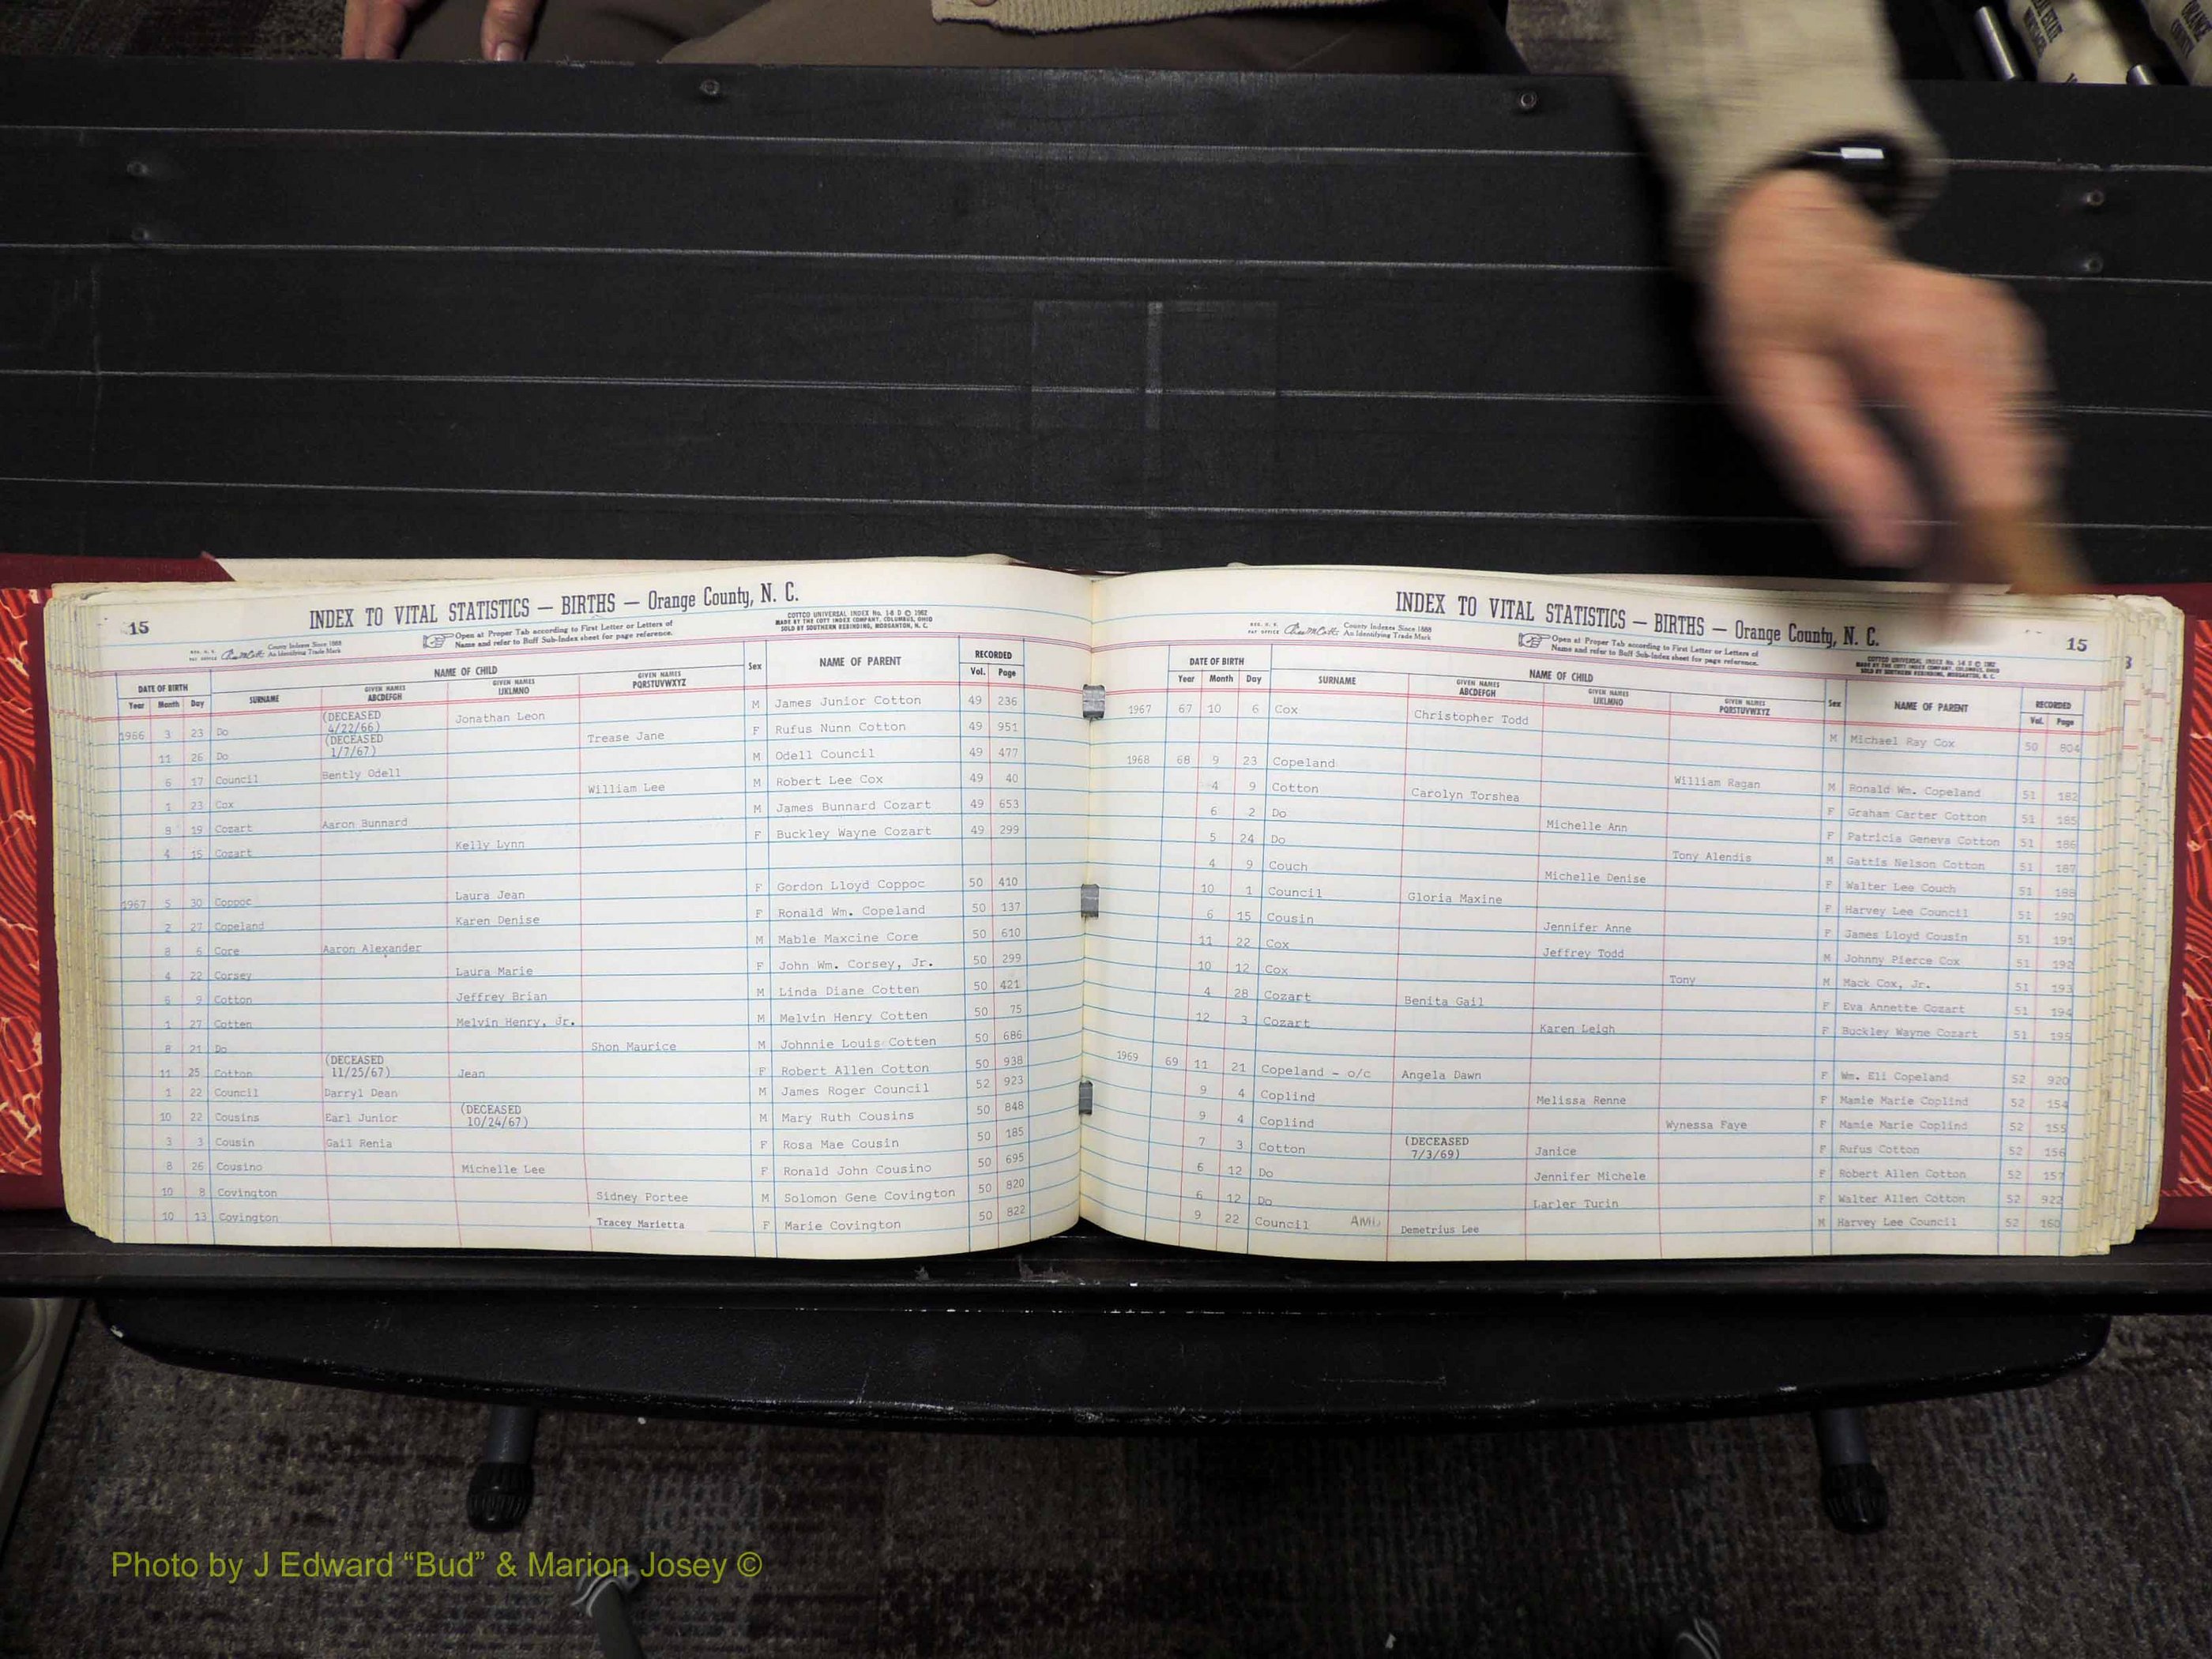 15
INDEX TO VITAL STATISTICS — BIRTHS — Orange County, N. C.
County Indexes Since 1888
An Identifying Trade Mark
Open at Proper Tab according to First Letter or Letters of
Name and refer to Buff Sub-Index sheet for page reference.
COTTCO UNIVERSAL INDEX No. 1-8 D © 1962
MADE BY THE COTT INDEX COMPANY, COLUMBUS, OHIO
SOLD BY SOUTHERN REBINDING, MORGANTON, N. C.
DATE OF BIRTH NAME OF CHILD Sex NAME OF PARENT RECORDED
Year Month Day SURNAME GIVEN NAMES ABCDEFGH GIVEN NAMES IJKLMNO GIVEN NAMES PQRSTUVWXYZ Vol. Page
1966 3 23 Do (DECEASED 4/22/66) Jonathan Leon M James Junior Cotton 49 236
11 26 Do (DECEASED 1/7/67) Trease Jane F Rufus Nunn Cotton 49 951
6 17 Council Bently Odell M Odell Council 49 477
1 23 Cox William Lee M Robert Lee Cox 49 40
8 19 Cozart Aaron Bunnard M James Bunnard Cozart 49 653
4 15 Cozart Kelly Lynn F Buckley Wayne Cozart 49 299
1967 5 30 Coppoc Laura Jean F Gordon Lloyd Coppoc 50 410
2 27 Copeland Karen Denise F Ronald Wm. Copeland 50 137
8 6 Core Aaron Alexander M Mable Maxcine Core 50 610
4 22 Corsey Laura Marie F John Wm. Corsey, Jr. 50 299
6 9 Cotton Jeffrey Brian M Linda Diane Cotten 50 421
1 27 Cotten Melvin Henry, Jr. M Melvin Henry Cotten 50 75
8 21 Do Shon Maurice M Johnnie Louis Cotten 50 686
11 25 Cotton (DECEASED 11/25/67) Jean F Robert Allen Cotton 50 938
1 22 Council Darryl Dean M James Roger Council 52 923
10 22 Cousins Earl Junior (DECEASED 10/24/67) M Mary Ruth Cousins 50 848
3 3 Cousin Gail Renia F Rosa Mae Cousin 50 185
8 26 Cousino Michelle Lee F Ronald John Cousino 50 695
10 8 Covington Sidney Portee M Solomon Gene Covington 50 820
10 13 Covington Tracey Marietta F Marie Covington 50 822
INDEX TO VITAL STATISTICS — BIRTHS — Orange County, N. C.
15
County Indexes Since 1888
An Identifying Trade Mark
Open at Proper Tab according to First Letter or Letters of
Name and refer to Buff Sub-Index sheet for page reference.
COTTCO UNIVERSAL INDEX No. 1-8 D © 1962
MADE BY THE COTT INDEX COMPANY, COLUMBUS, OHIO
SOLD BY SOUTHERN REBINDING, MORGANTON, N. C.
DATE OF BIRTH NAME OF CHILD Sex NAME OF PARENT RECORDED
Year Month Day SURNAME GIVEN NAMES ABCDEFGH GIVEN NAMES IJKLMNO GIVEN NAMES PQRSTUVWXYZ Vol. Page
1967 67 10 6 Cox Christopher Todd M Michael Ray Cox 50 804
1968 68 9 23 Copeland William Ragan M Ronald Wm. Copeland 51 182
4 9 Cotton Carolyn Torshea F Graham Carter Cotton 51 185
6 2 Do Michelle Ann F Patricia Geneva Cotton 51 186
5 24 Do Tony Alendis M Gattis Nelson Cotton 51 187
4 9 Couch Michelle Denise F Walter Lee Couch 51 188
10 1 Council Gloria Maxine F Harvey Lee Council 51 190
6 15 Cousin Jennifer Anne F James Lloyd Cousin 51 191
11 22 Cox Jeffrey Todd M Johnny Pierce Cox 51 192
10 12 Cox Tony M Mack Cox, Jr. 51 193
4 28 Cozart Benita Gail F Eva Annette Cozart 51 194
12 3 Cozart Karen Leigh F Buckley Wayne Cozart 51 195
1969 69 11 21 Copeland - o/c Angela Dawn F Wm. Eli Copeland 52 920
9 4 Coplind Melissa Renne F Mamie Marie Coplind 52 154
9 4 Coplind Wynessa Faye F Mamie Marie Coplind 52 155
7 3 Cotton (DECEASED 7/3/69) Janice F Rufus Cotton 52 156
6 12 Do Jennifer Michele F Robert Allen Cotton 52 157
6 12 Do Larler Turin F Walter Allen Cotton 52 922
9 22 Council Demetrius Lee M Harvey Lee Council 52 160
Photo by J Edward “Bud” & Marion Josey ©